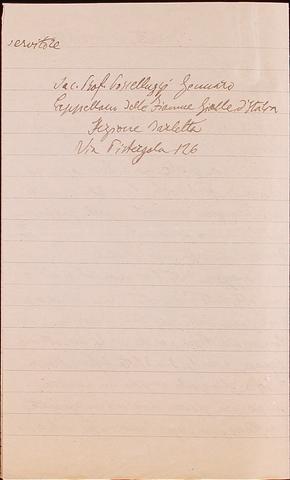 servitore
Sac. Prof. Gennaro
Cappellano delle Fiamme Gialle d'Italia
Sezione Barletta
Via Pistergola 126